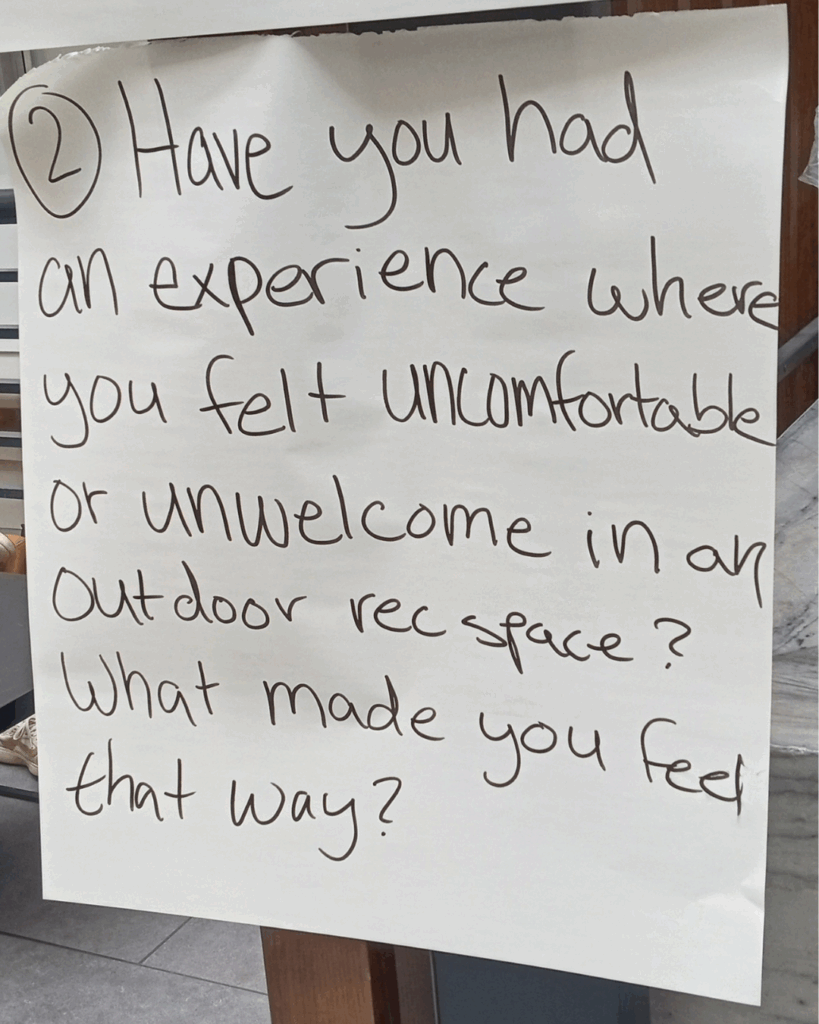 ② Have you had
an experience where
you felt uncomfortable
or unwelcome in an
outdoor rec space?
What made you feel
that way?